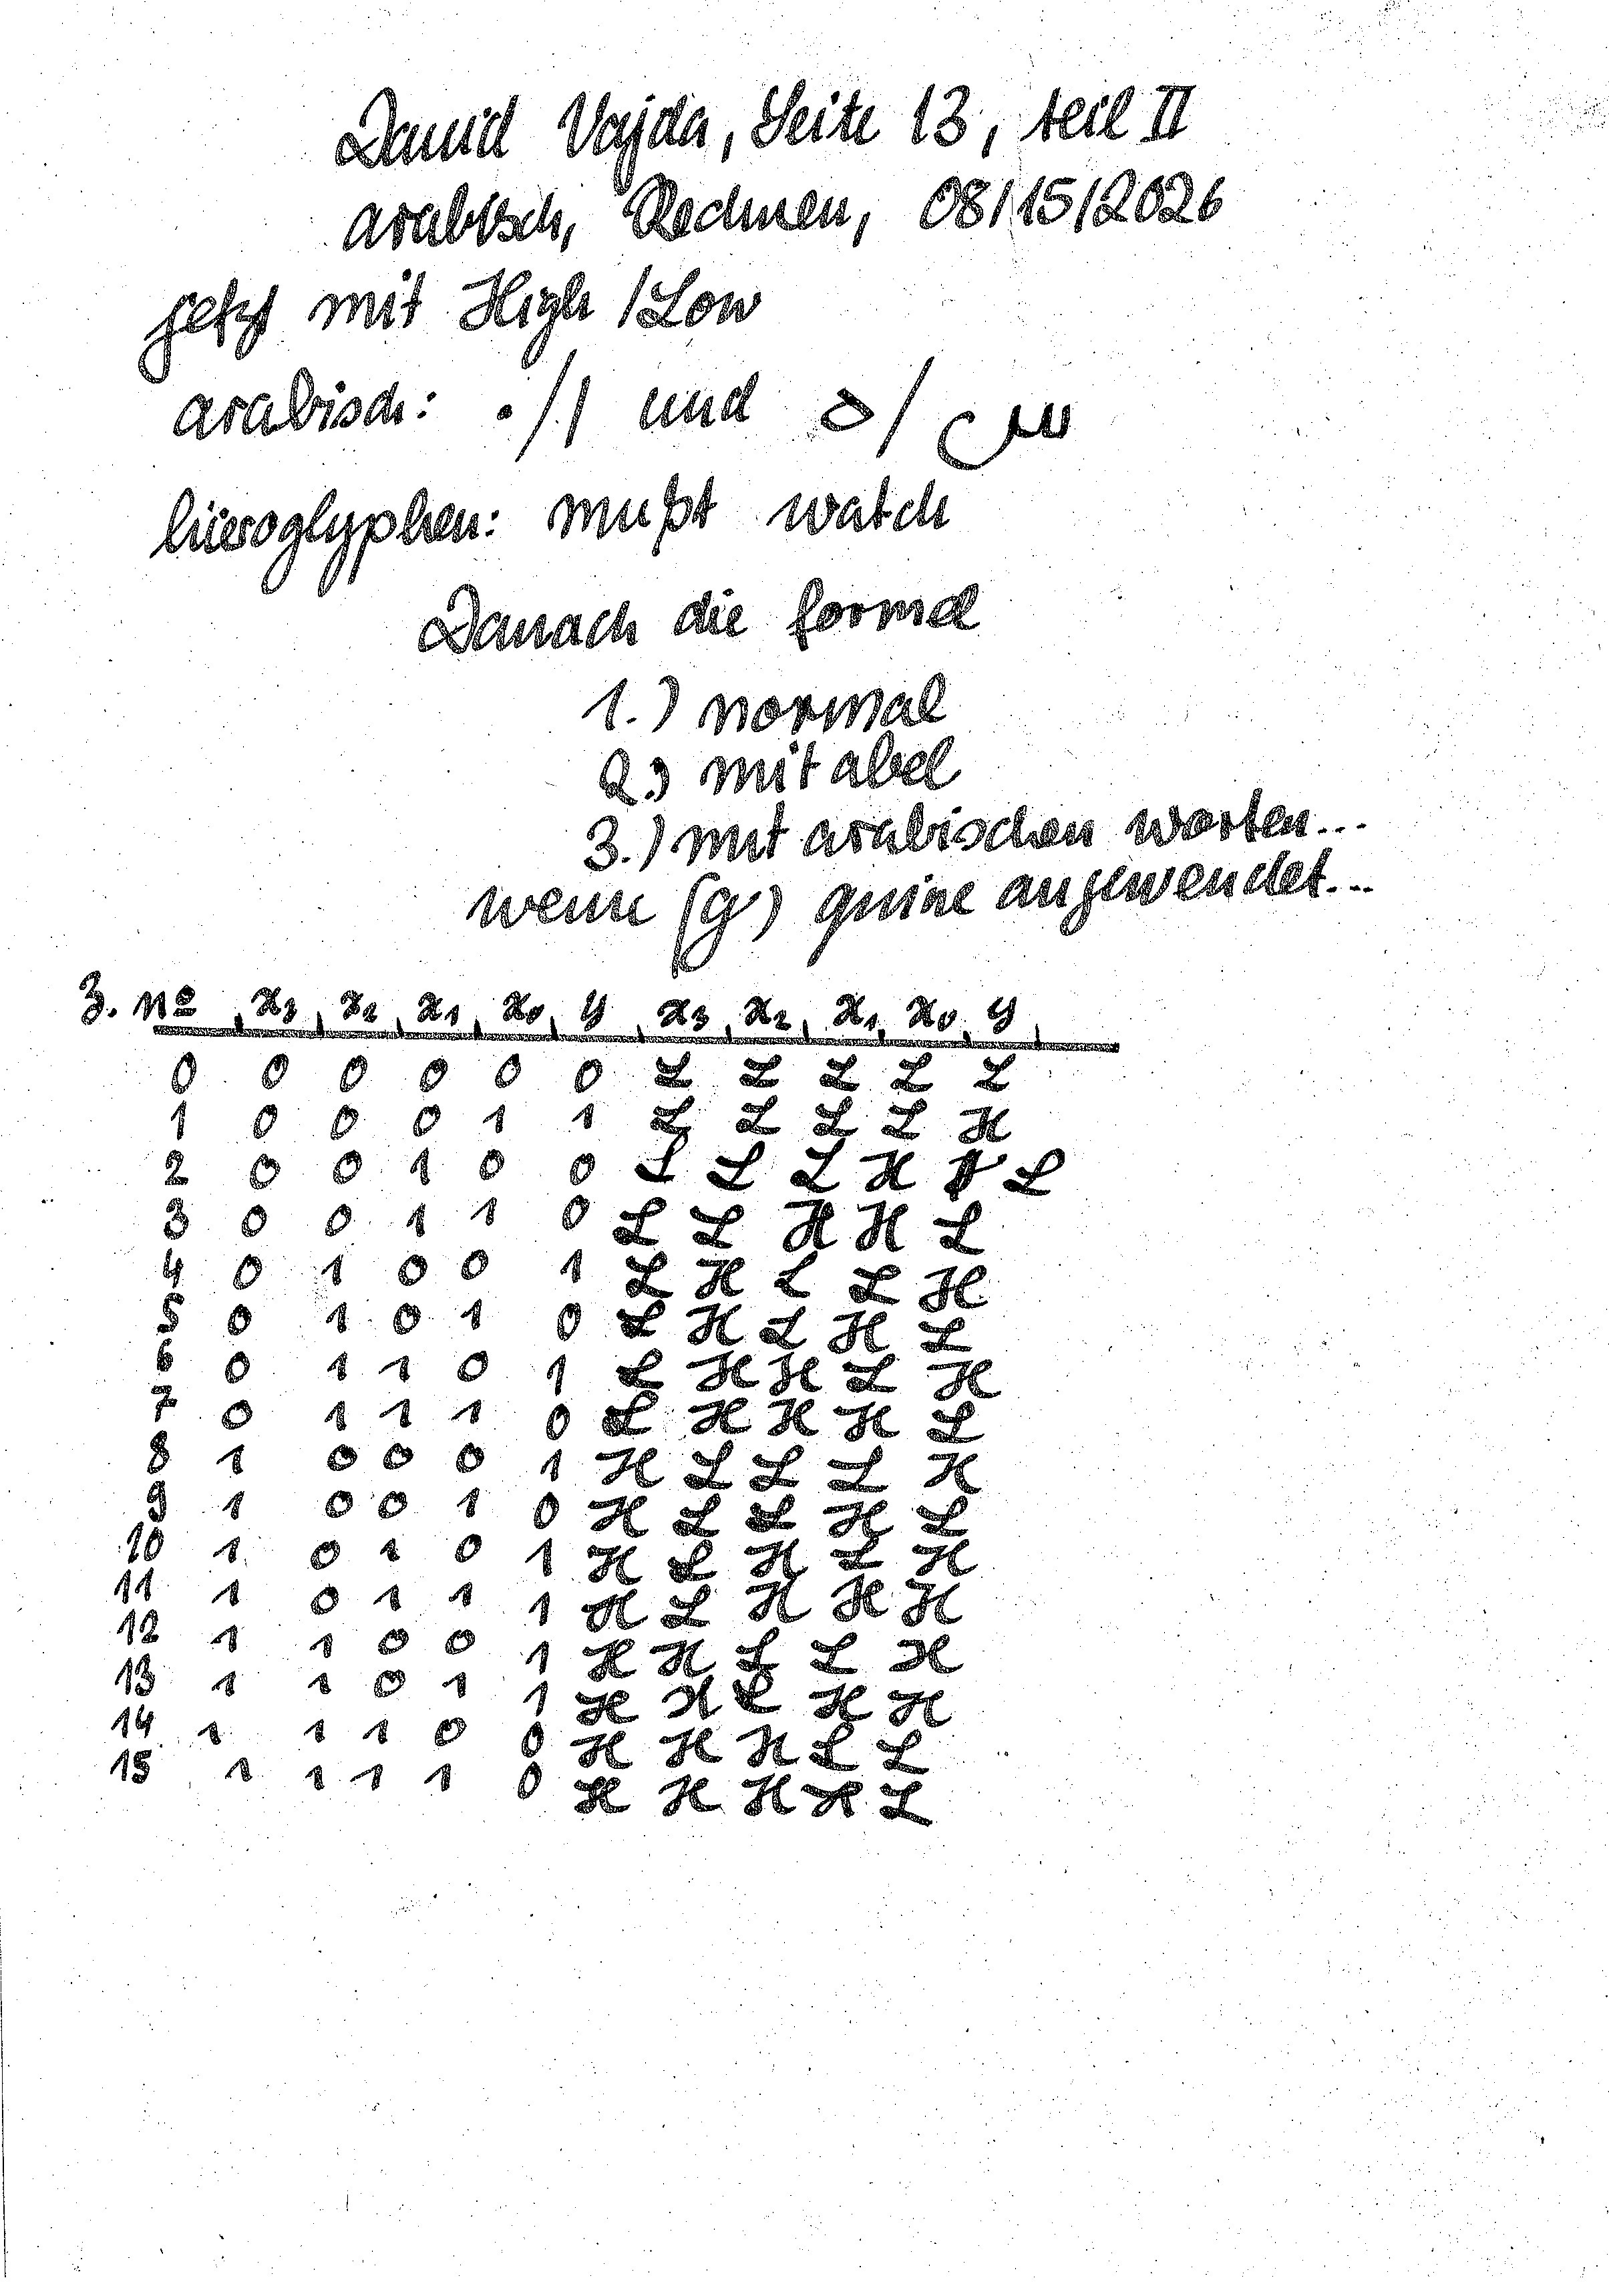 David Vajda, Seite 13, teil II
arabisch, Rechnen, 08/15/2026
jetzt mit High /Low
arabisch: ٠/١ und ه/س
hieroglyphen: mußt watch
Danach die formel
1.) normal
2.) mit abel
3.) mit arabischen worten...
wenn (g) quine angewendet...
3. Nº x₃ x₂ x₁ x₀ y x₃ x₂ x₁ x₀ y
0 0 0 0 0 0 L L L L L
1 0 0 0 1 1 L L L L H
2 0 0 1 0 0 L L L H L
3 0 0 1 1 0 L L H H L
4 0 1 0 0 1 L H L L H
5 0 1 0 1 0 L H L H L
6 0 1 1 0 1 L H H L H
7 0 1 1 1 0 L H H H L
8 1 0 0 0 1 H L L L H
9 1 0 0 1 0 H L L H L
10 1 0 1 0 1 H L H L H
11 1 0 1 1 1 H L H H H
12 1 1 0 0 1 H H L L H
13 1 1 0 1 1 H H L H H
14 1 1 1 0 0 H H H L L
15 1 1 1 1 0 H H H H L